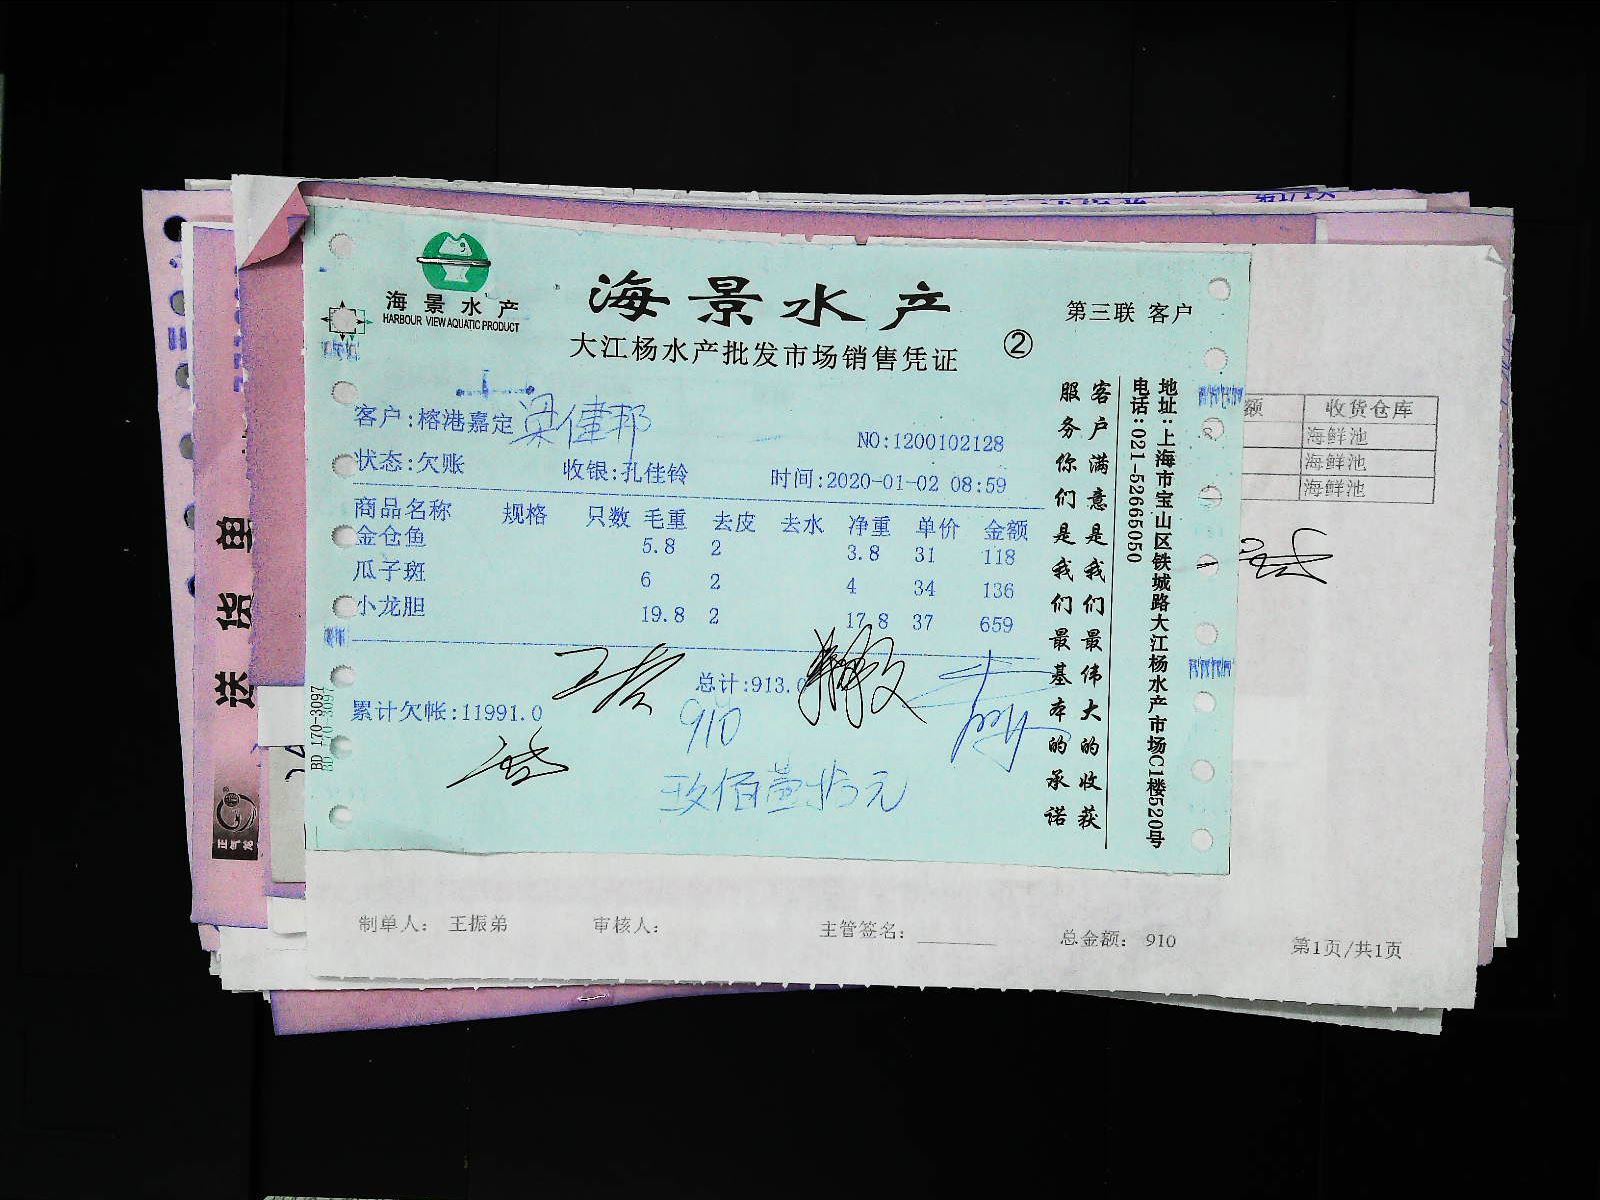 海景水产
HARBOUR VIEW AQUATIC PRODUCT
海景水产
大江杨水产批发市场销售凭证
②
第三联 客户
客户:榕港嘉定 梁健邦
NO:1200102128
状态:欠账 收银:孔佳铃 时间:2020-01-02 08:59
商品名称 规格 只数 毛重 去皮 去水 净重 单价 金额
金仓鱼 5.8 2 3.8 31 118
瓜子斑 6 2 4 34 136
小龙胆 19.8 2 17.8 37 659
总计:913.0
累计欠帐:11991.0
910
玖佰壹拾元
客户满意是我们最伟大的收获
服务你们是我们最基本的承诺
地址:上海市宝山区铁城路大江杨水产市场C1楼520号
电话:021-52665050
BD 170-3097
BD 170-3097
送货单
正气龙
额 收货仓库
海鲜池
海鲜池
海鲜池
制单人: 王振弟 审核人: 主管签名: 总金额: 910 第1页/共1页